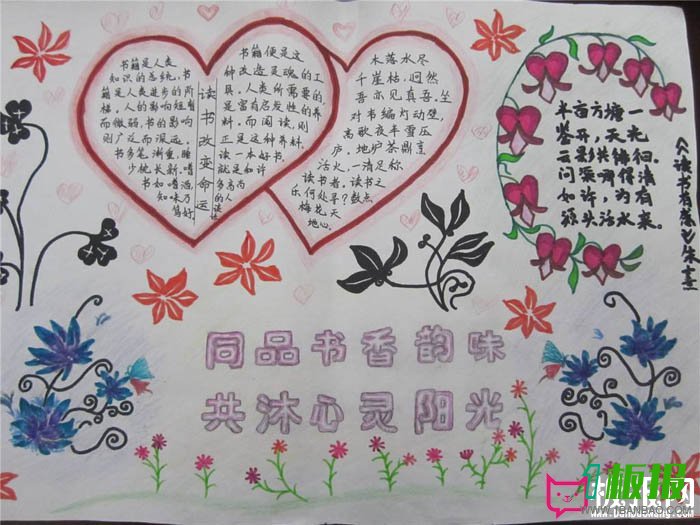 书籍是人类
知识的总统。书
籍是人类进步的阶
梯。人的影响短暂
而微弱,书的影响
则广泛而深远。
书多笔渐重,睡
少枕长新。嗜
书如嗜酒,
知味乃
笃好
读书改变命运
书籍便是这
种改造灵魂的工
具。人类所需要的,
是富有启发性的养
料。而阅读,则
正是这种养料。
读一本好书,
就是和许
多高尚
的人谈话
木落水尽
千崖枯,迥然
吾亦见真吾。坐
对韦编灯动壁,
高歌夜半雪压
庐。地炉茶鼎烹
活火,一清足称
读书者。读书之
乐何处寻?数点
梅花天
地心。
半亩方塘一
鉴开,天光
云影共徘徊。
问渠哪得清
如许,为有
源头活水来。
《读书有感》朱熹
同品书香韵味
共沐心灵阳光
板报
WWW.1BANBAO.COM